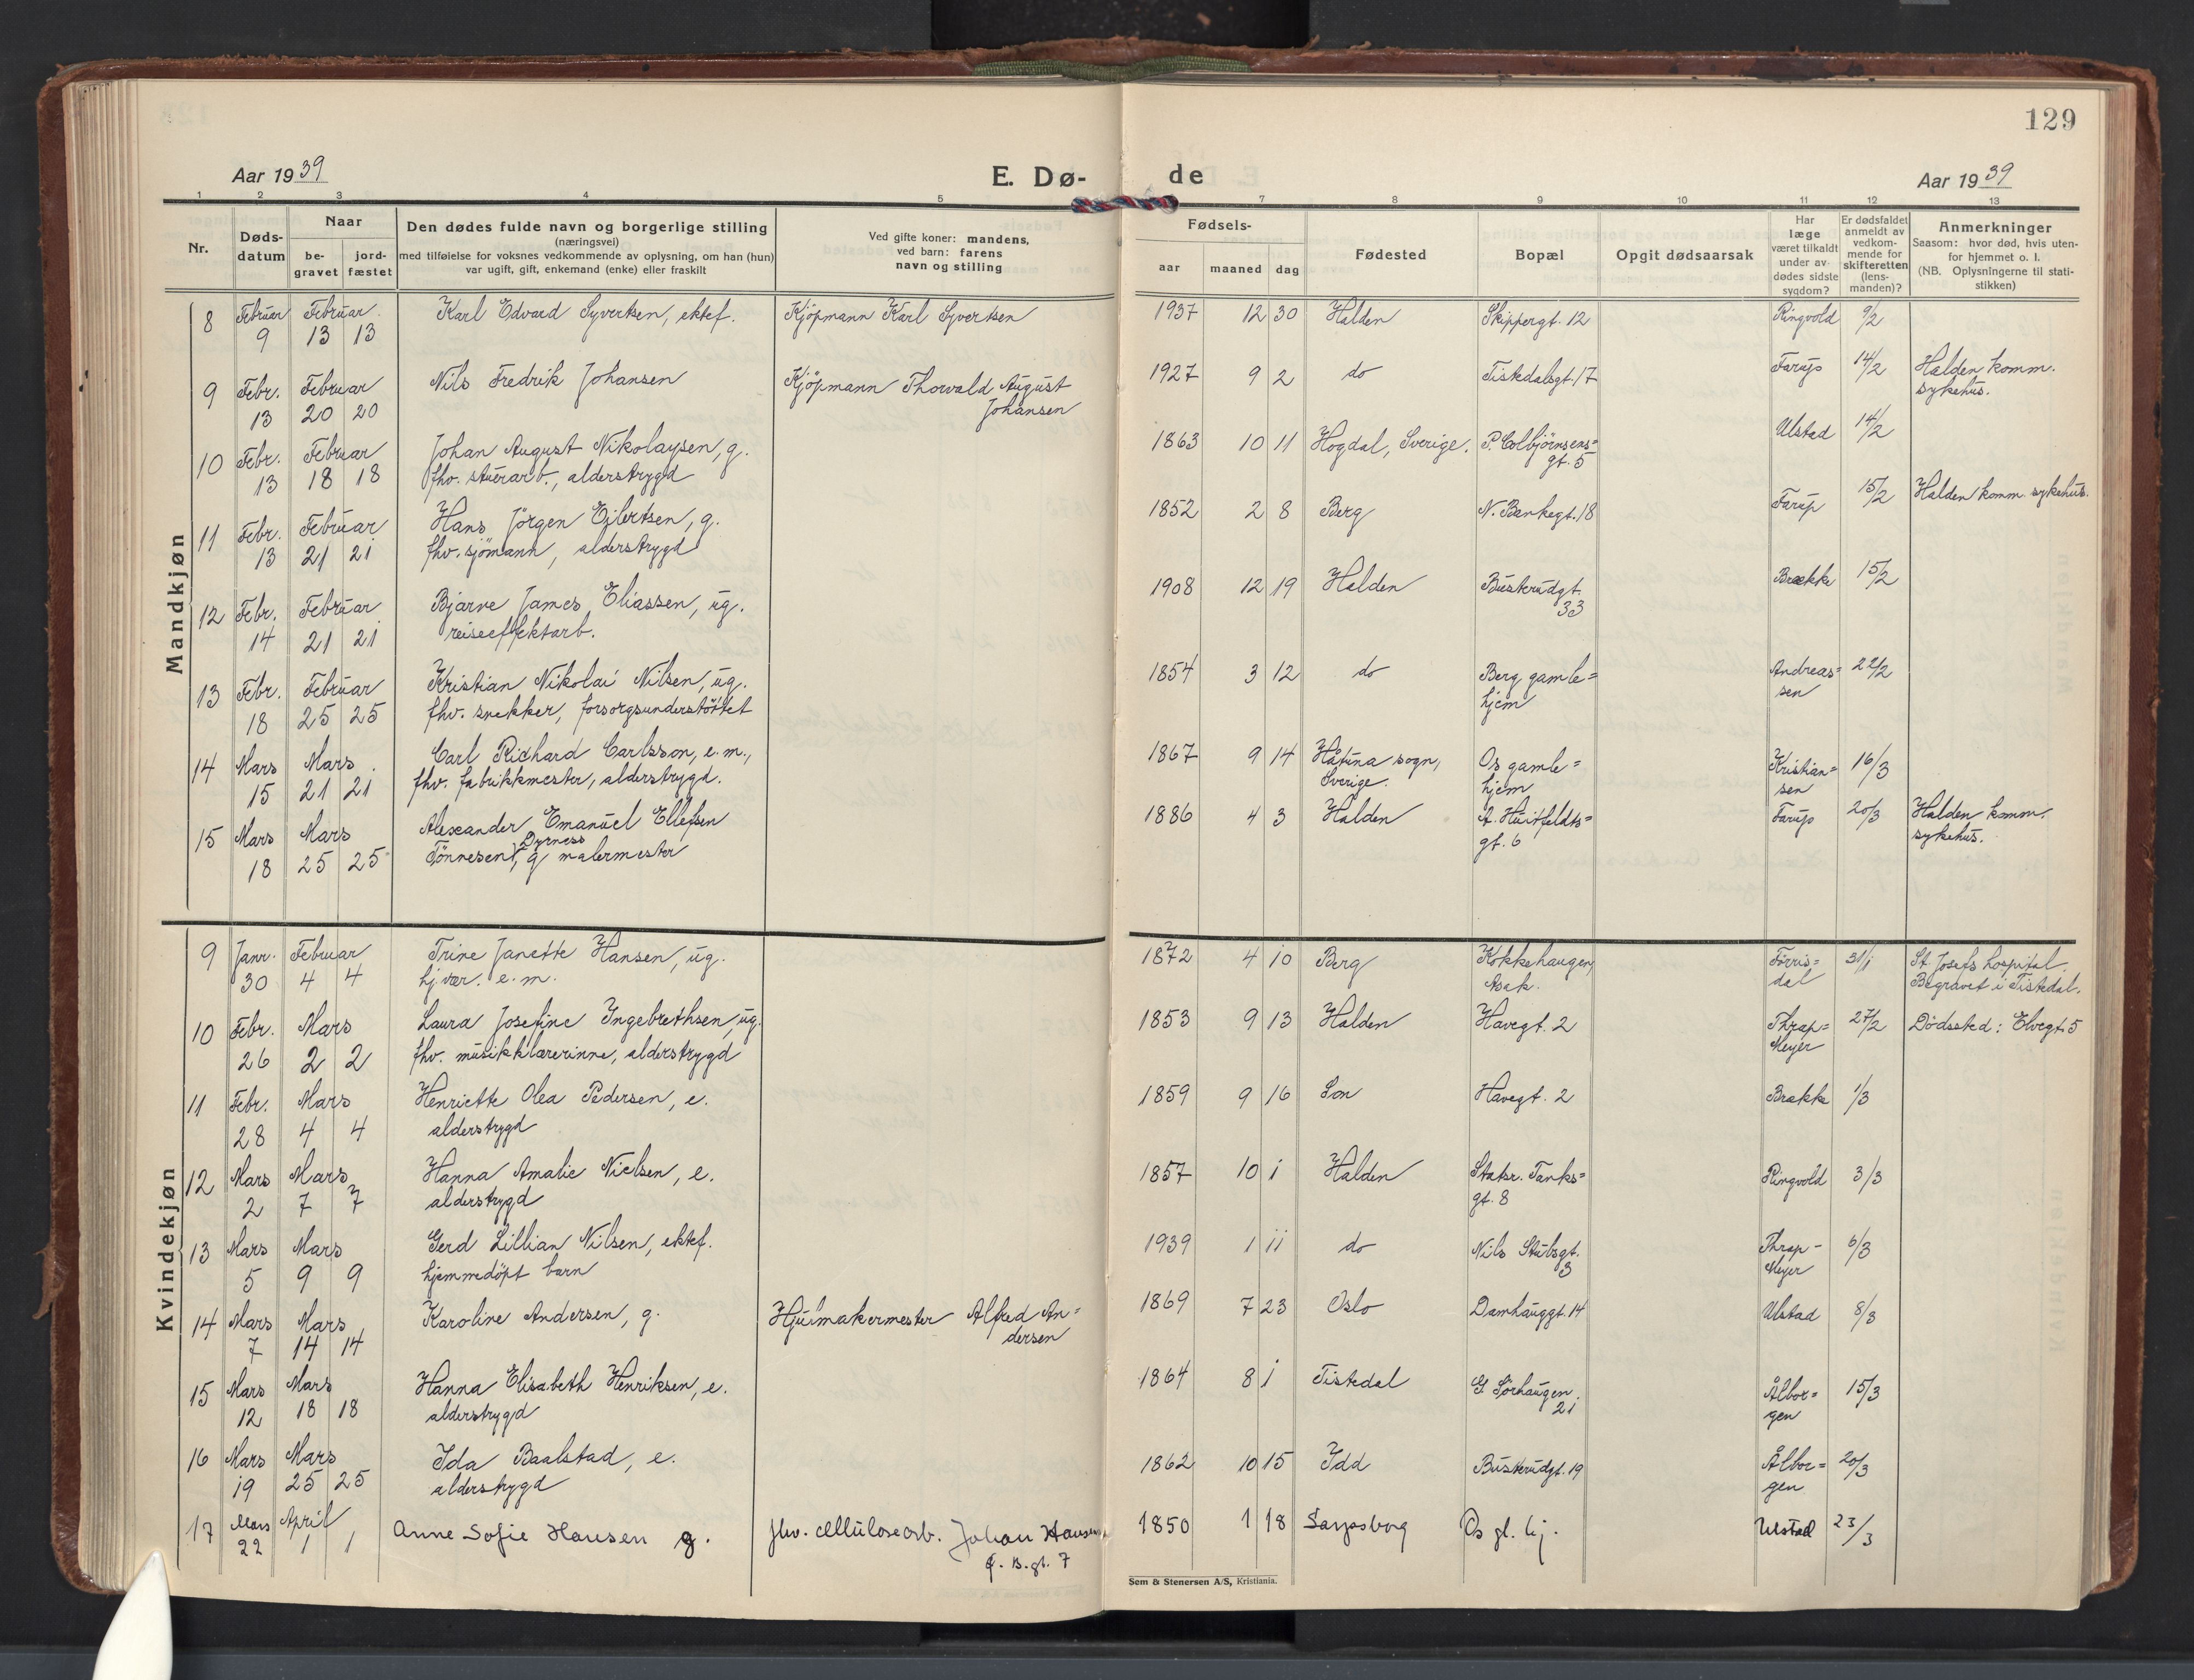 129
Aar 1939
E. Dø-
de
Aar 1939
1 2 3 4 5 7 8 9 10 11 12 13
Nr.
Døds-
datum
Naar
be-
gravet
jord-
fæstet
Den dødes fulde navn og borgerlige stilling
(næringsvei)
med tilføielse for voksnes vedkommende av oplysning, om han (hun)
var ugift, gift, enkemand (enke) eller fraskilt
Ved gifte koner: mandens,
ved barn: farens
navn og stilling
Fødsels-
aar maaned dag
Fødested
Bopæl
Opgit dødsaarsak
Har
læge
været tilkaldt
under av-
dødes sidste
sygdom?
Er dødsfaldet
anmeldt av
vedkom-
mende for
skifteretten
(lens-
manden)?
Anmerkninger
Saasom: hvor død, hvis uten-
for hjemmet o. l.
(NB. Oplysningerne til stati-
stikken)
Mandkjøn
8 Februar Februar Karl Edvard Syvertsen, ektef. Kjöpmann Karl Syvertsen 1937 12 30 Halden Skippergt. 12 Ringvold 9/2
9 13 13
9 Febr. Februar Nils Fredrik Johansen Kjöpmann Thorvald August 1927 9 2 do Tistedalsgt. 17 Farup 14/2 Halden komm.
13 20 20 Johansen sykehus.
10 Febr. Februar Johan August Nikolaysen, g. 1863 10 11 Hogdal, Sverige. P. Colbjörnsens= Ulstad 14/2
13 18 18 fhv. stuerarb., alderstrygd gt. 5
11 Febr. Februar Hans Jörgen Eilertsen, g. 1852 2 8 Berg N. Bankegt. 18 Farup 15/2 Halden komm. sykehus.
13 21 21 fhv. sjömann, alderstrygd
12 Febr. Februar Bjarne James Eliassen, ug. 1908 12 19 Halden Buskerudgt. Brækk 15/2
14 21 21 reiseeffektarb. 33
13 Febr. Februar Kristian Nikolai Nilsen, ug. 1854 3 12 do Berg gamle= Andreas= 22/2
18 25 25 fhv. snekker, forsorgsunderstöttet hjem sen
14 Mars Mars Carl Richard Carlsson, e.m., 1867 9 14 Håtuna sogn, Os gamle= Kristian= 16/3
15 21 21 fhv. fabrikkmester, alderstrygd. Sverige. hjem sen
15 Mars Mars Alexander Emanuel Ellefsen 1886 4 3 Halden A. Huitfeldts= Farup 20/3 Halden komm.
Dyrness
18 25 25 Tönnesen, g malermester gt. 6 sykehus.
Kvindekjøn
9 Janr. Februar Trine Janette Hansen, ug. 1872 4 10 Berg Kokkehaugen, Förris= 31/1 St. Josefs hospital.
30 4 4 hj.vær. e.m. Asak. dal Begravet i Tistedal.
10 Febr. Mars Laura Josefine Ingebrethsen, ug. 1853 9 13 Halden Havegt. 2 Thrap= 27/2 Dödssted: Elvegt. 5
26 2 2 fhv. musikklærerinne, alderstrygd Meyer
11 Febr. Mars Henriette Olea Pedersen, e. 1859 9 16 Son Havegt. 2 Brække 1/3
28 4 4 alderstrygd
12 Mars Mars Hanna Amalie Nielsen, e. 1857 10 1 Halden Statsr. Tanks= Ringvold 3/3
2 7 7 alderstrygd gt. 8
13 Mars Mars Gerd Lillian Nilsen, ektef. 1939 1 11 do Nils Stubsgt. Thrap- 6/3
5 9 9 hjemmedöpt barn 3 Meyer
14 Mars Mars Karoline Andersen, g. Hjulmakermester Alfred An= 1869 7 23 Oslo Damhauggt. 14 Ulstad 8/3
7 14 14 dersen
15 Mars Mars Hanna Elisabeth Henriksen, e. 1864 8 1 Tistedal G. Sörhaugen. Ålbor= 15/3
12 18 18 alderstrygd 21 gen
16 Mars Mars Ida Baalstad, e. 1862 10 15 Idd Buskerudgt. 19 Ålbor= 20/3
19 25 25 alderstrygd gen
17 Mars April Anne Sofie Hansen g. fhv. cellulosearb. Johan Hansen 1850 1 18 Sarpsborg Os gl. hj. Ulstad 23/3
22 1 1 B.gt. 7
Sem & Stenersen A/S, Kristiania.